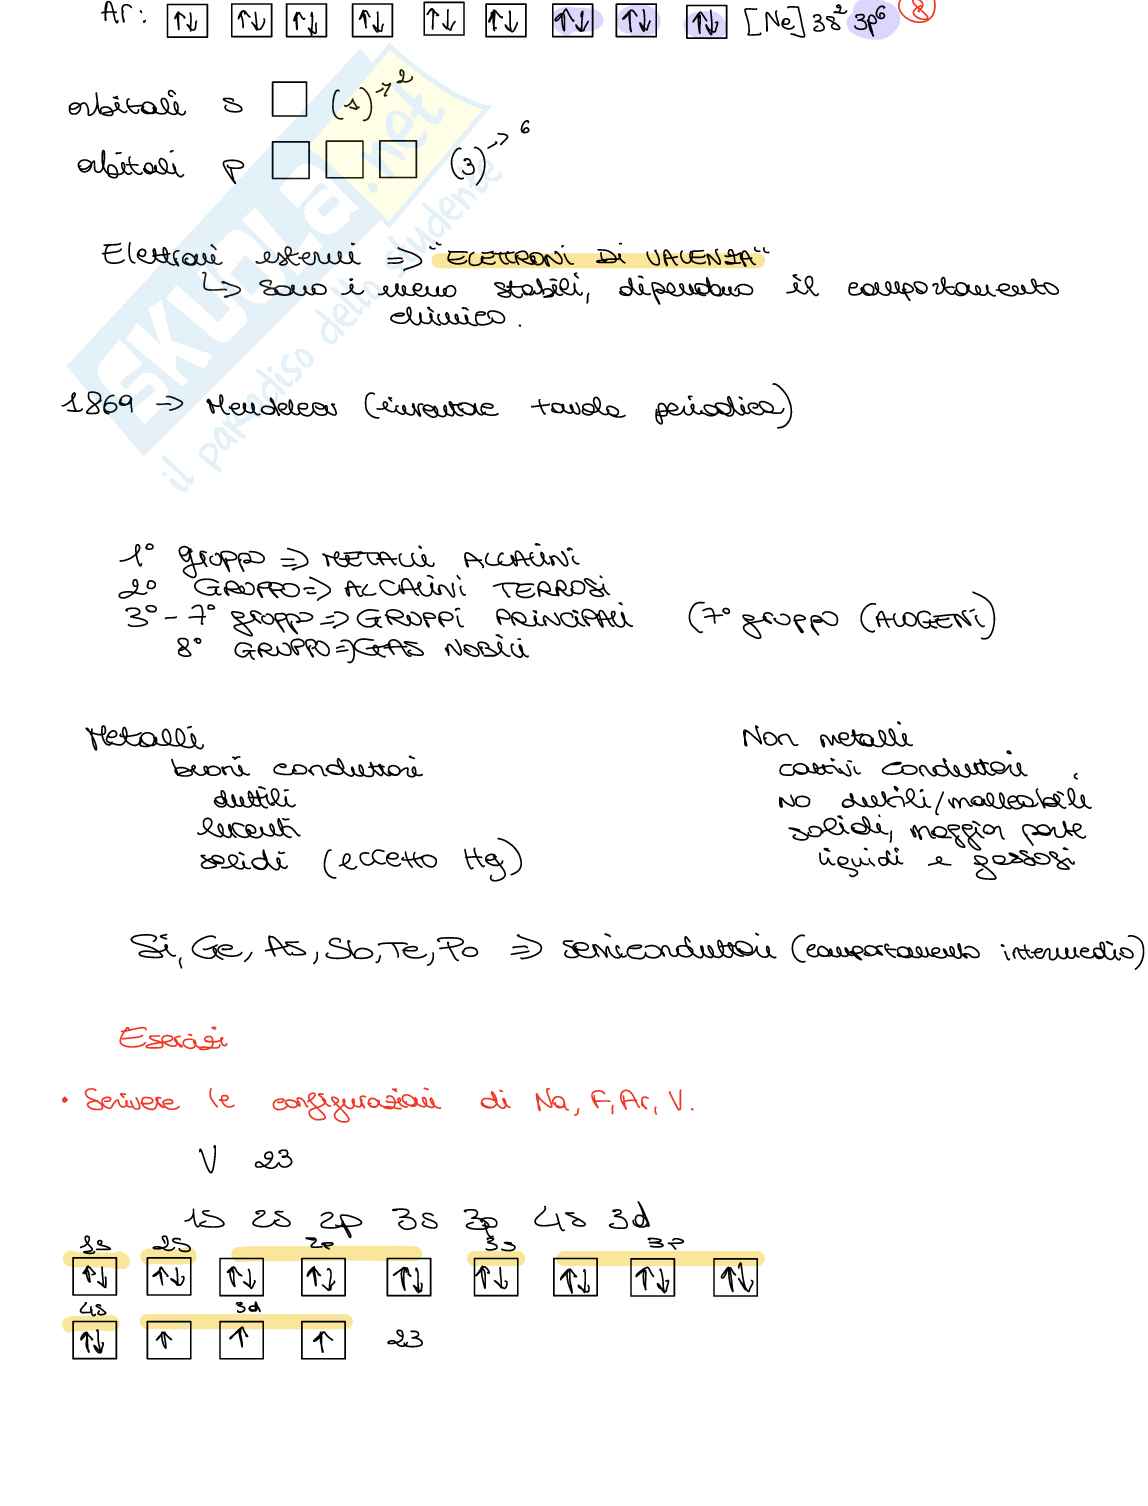 Ar: ↑↓ ↑↓ ↑↓ ↑↓ ↑↓ ↑↓ ↑↓ ↑↓ ↑↓ [Ne] 3s² 3p⁶ 8
orbitali s (1)→2
orbitali p (3)→6
Elettroni esterni => "ELETTRONI DI VALENZA"
↳ sono i meno stabili, dipendono il comportamento
chimico.
1869 → Mendeleev (inventore tavola periodica)
1° gruppo => METALLI ALCALINI
2° GRUPPO => ALCALINI TERROSI
3° - 7° gruppo => GRUPPI PRINCIPALI (7° gruppo (ALOGENI)
8° GRUPPO => GAS NOBILI
Metalli Non metalli
buoni conduttori cattivi conduttori
duttili NO duttili/malleabili
lucenti solidi, maggior parte
solidi (eccetto Hg) liquidi e gassosi
Si, Ge, As, Sb, Te, Po => semiconduttori (comportamento intermedio)
Esercizi
• Scrivere le configurazioni di Na, F, Ar, V.
V 23
1s 2s 2p 3s 3p 4s 3d
1s 2s 2p 3s 3p
↑↓ ↑↓ ↑↓ ↑↓ ↑↓ ↑↓ ↑↓ ↑↓ ↑↓
4s 3d
↑↓ ↑ ↑ ↑ 23
SKUOLA.net
il paradiso dello studente